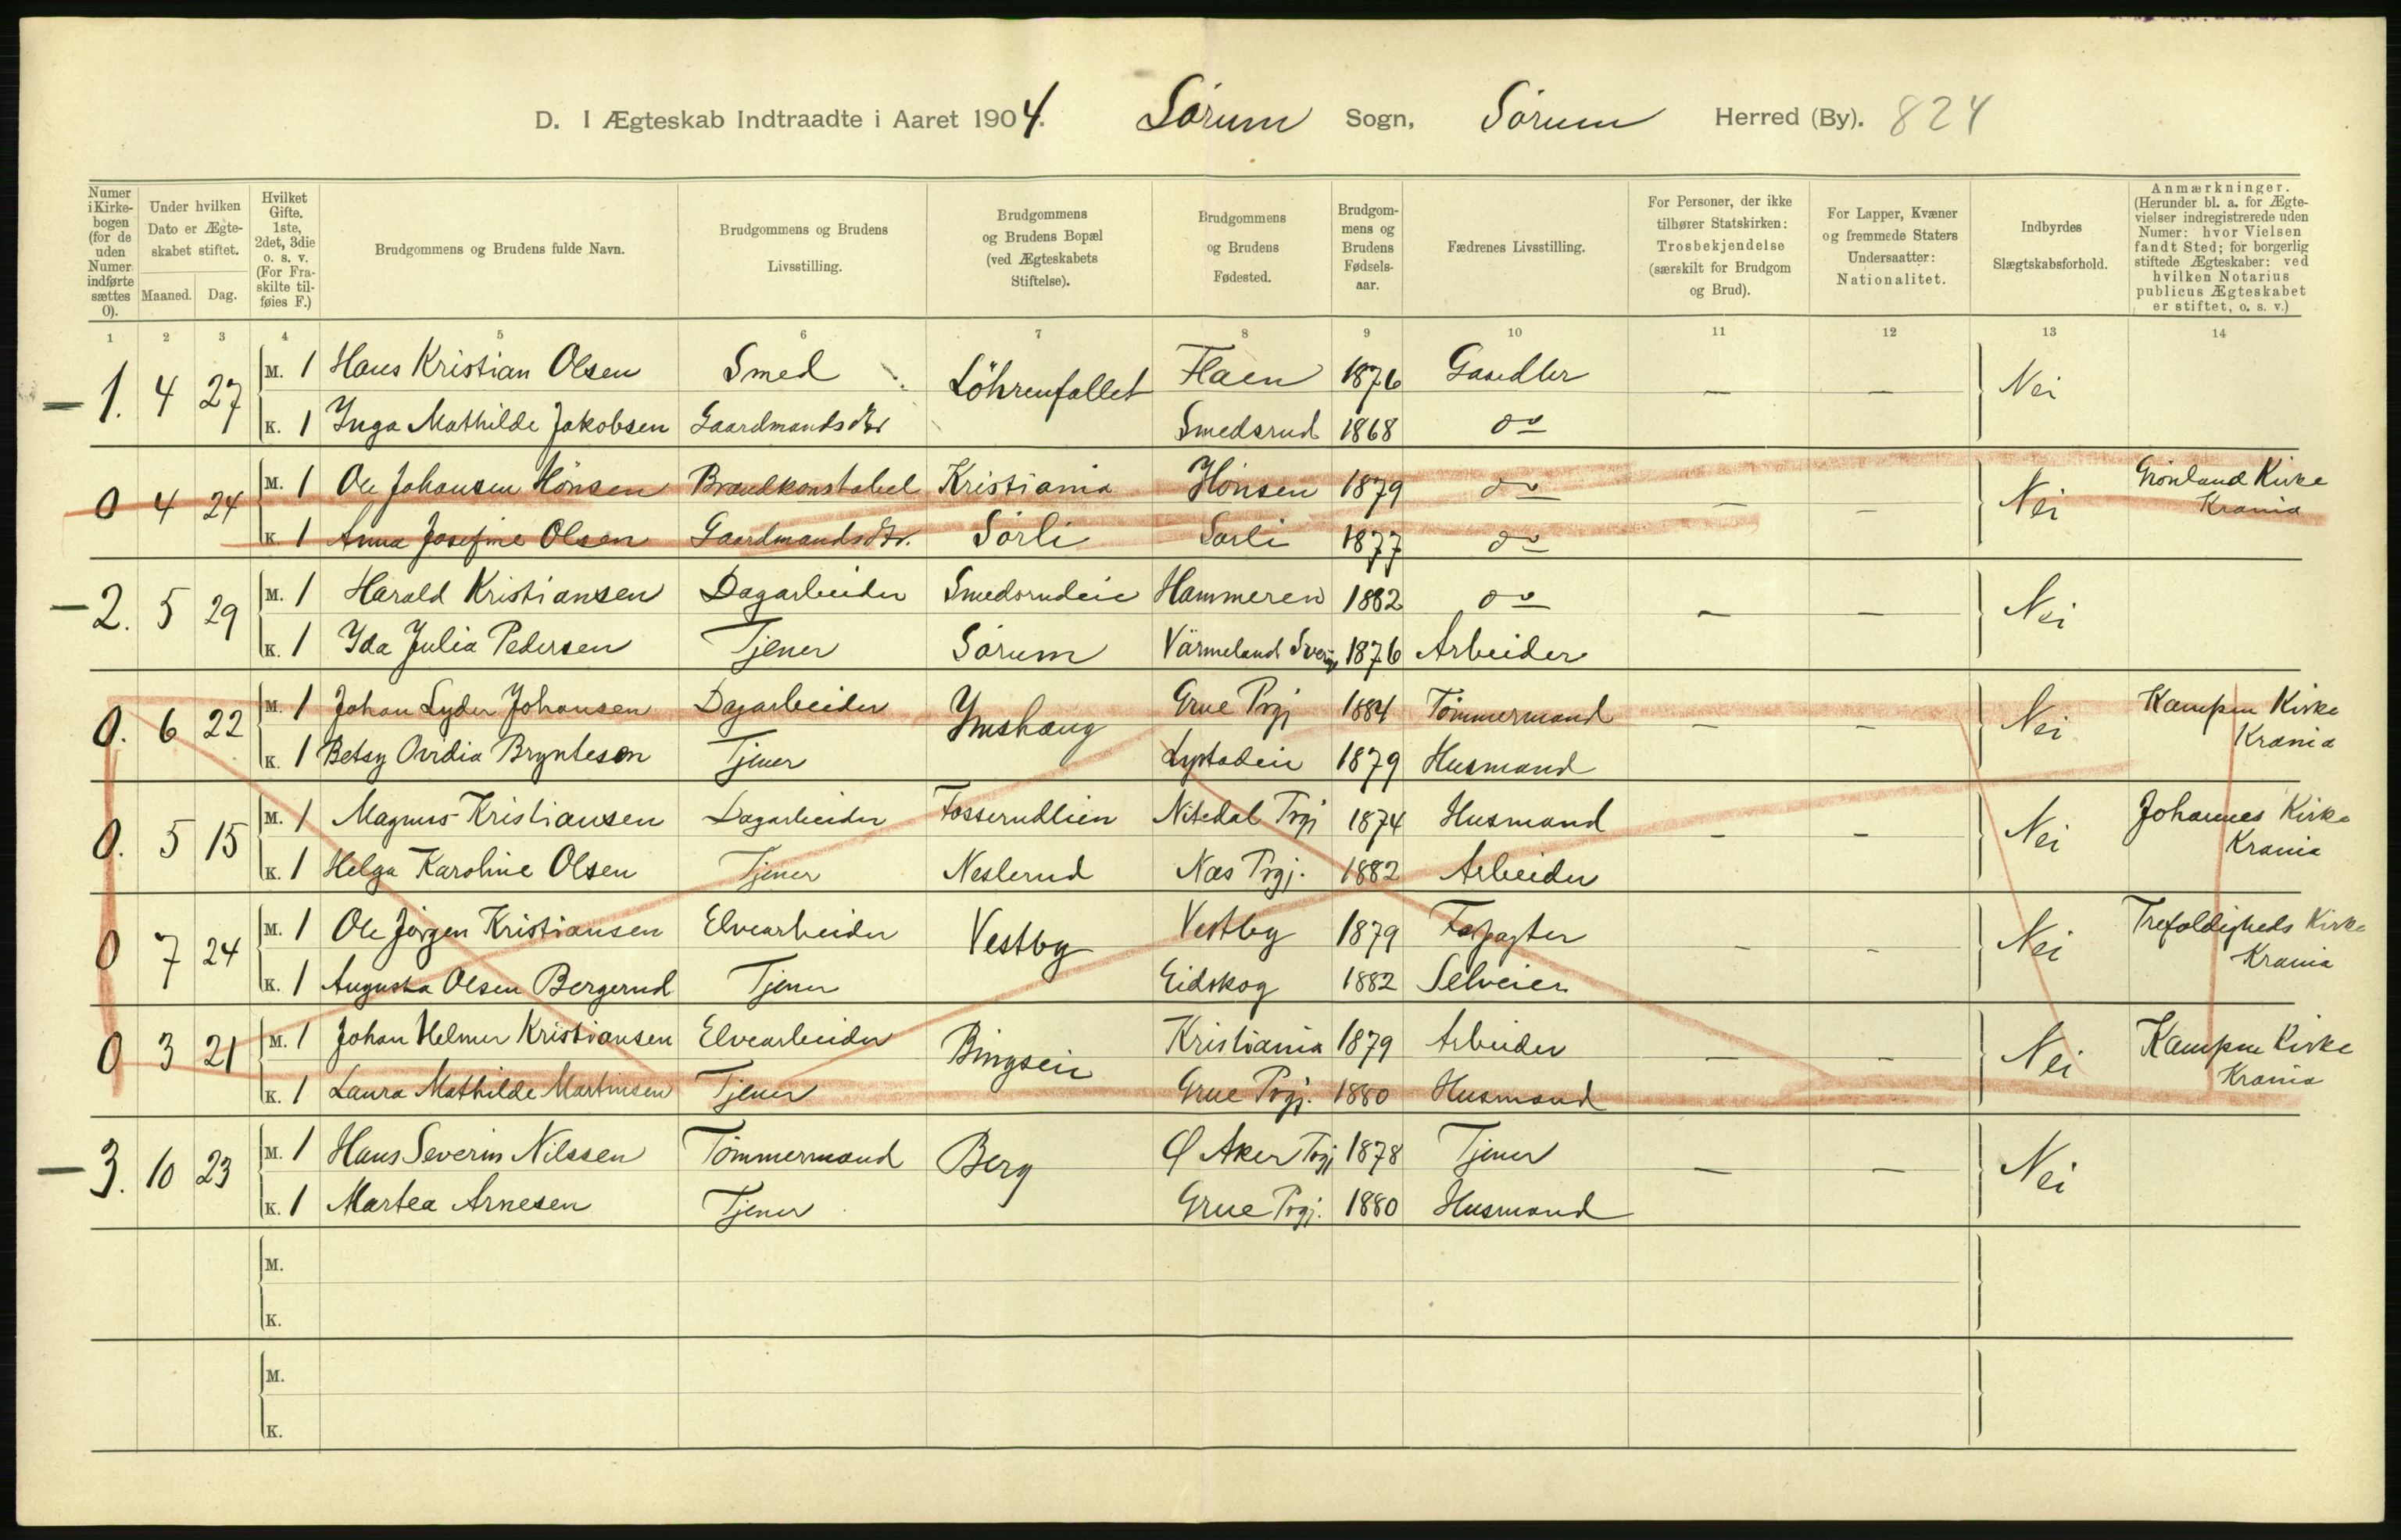 D. I Ægteskab Indtraadte i Aaret 1904. Sørum Sogn, Sørum Herred (By). 824
Numer i Kirkebogen (for de uden Numer indførte sættes 0).
Under hvilken Dato er Ægteskabet stiftet.
Maaned. Dag.
Hvilket Gifte. 1ste, 2det, 3die o. s. v. (For Fraskilte tilføies F.)
Brudgommens og Brudens fulde Navn.
Brudgommens og Brudens Livsstilling.
Brudgommens og Brudens Bopæl (ved Ægteskabets Stiftelse).
Brudgommens og Brudens Fødested.
Brudgommens og Brudens Fødselsaar.
Fædrenes Livsstilling.
For Personer, der ikke tilhører Statskirken: Trosbekjendelse (særskilt for Brudgom og Brud).
For Lapper, Kvæner og fremmede Staters Undersaatter: Nationalitet.
Indbyrdes Slægtskabsforhold.
Anmærkninger. (Herunder bl. a. for Ægtevielser indregistrerede uden Numer: hvor Vielsen fandt Sted; for borgerlig stiftede Ægteskaber: ved hvilken Notarius publicus Ægteskabet er stiftet, o. s. v.)
1 2 3 4 5 6 7 8 9 10 11 12 13 14
1. 4 27 M. 1 Hans Kristian Olsen Smed Löhrenfallet Flaen 1876 Gaardbr — — Nei
K. 1 Inga Mathilde Jakobsen Gaardmandsdtr Smedsrud 1868 do
0 4 24 M. 1 Ole Johansen Hönsen Brandkonstabel Kristiania Hönsen 1879 do — — Nei Grönland Kirke Krania
K. 1 Anna Josefine Olsen Gaardmandsdtr. Sörli Sörli 1877 do
2. 5 29 M. 1 Harald Kristiansen Dagarbeider Smedsrudeie Hammeren 1882 do — — Nei
K. 1 Ida Julia Pedersen Tjener Sörum Värmeland Sverige 1876 Arbeider
0. 6 22 M. 1 Johan Lyder Johansen Dagarbeider Ymshaug Grue Prgj 1884 Tömmermand — — Nei Kampen Kirke Krania
K. 1 Betsy Ovidia Bryntesen Tjener 1879 Husmand
0. 5 15 M. 1 Magnus Kristiansen Dagarbeider Fosserudlien Nitedal Prgj 1874 Husmand — — Nei Johannes Kirke Krania
K. 1 Helga Karoline Olsen Tjener Neslerud Næs Prgj. 1882 Arbeider
0 7 24 M. 1 Ole Jörgen Kristiansen Elvearbeider Vestby Vestby 1879 Forpagter — — Nei Trefoldigheds Kirke Krania
K. 1 Augusta Olsen Bergerud Tjener Eidskog 1882 Selveier
0 3 21 M. 1 Johan Helmer Kristiansen Elvearbeider Bingseie Kristiania 1879 Arbeider — — Nei Kampen Kirke Krania
K. 1 Laura Mathilde Martinsen Tjener Grue Prgj. 1880 Husmand
3. 10 23 M. 1 Hans Severin Nilssen Tömmermand Berg Ø Aker Prgj 1878 Tjener — — Nei
K. 1 Martea Arnesen Tjener Grue Prgj. 1880 Husmand
M.
K.
M.
K.